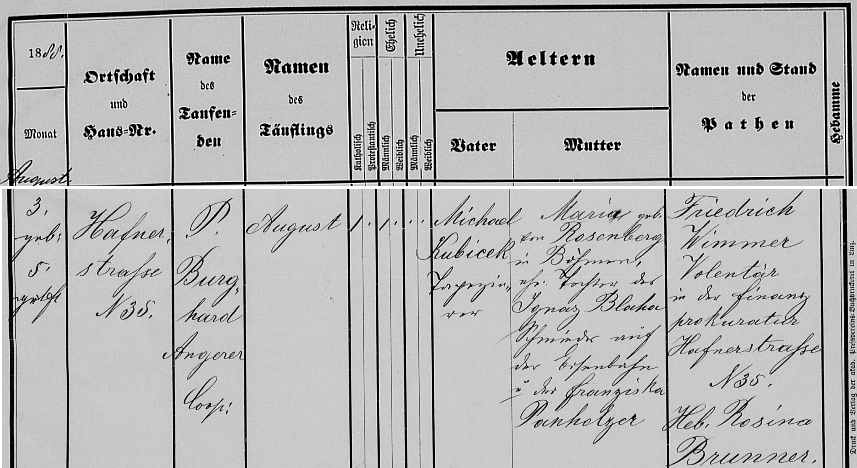 1888.
Monat
August
Ortschaft
und
Haus-Nr.
Name
des
Taufen-
den
Namen
des
Täuflings
Reli-
gion
Katholisch
Protestantisch
Ehelich
Männlich
Weiblich
Unehelich
Männlich
Weiblich
Aeltern
Vater
Mutter
Namen und Stand
der
Pathen
Hebamme
3.
geb:
5.
get
Hafner,
strasse
N 35.
P.
Burg-
hard
Angerer
Coop:
August
1. 1. . .
Michael
Kubicek
Tapezie-
rer
Maria geb.
von Rosenberg
in Böhmen,
ehe. Tochter des
Ignaz Blaha
Schmiedes auf
der Eisenbahn
u. der Franziska
Panholzer
Friedrich
Wimmer
Volentär
in der Finanz
prokuratur
Hafnerstrasse
N 35.
Heb. Rosina
Brunner.
Druck und Verlag der akad. Pressvereins-Buchdruckerei in Linz.